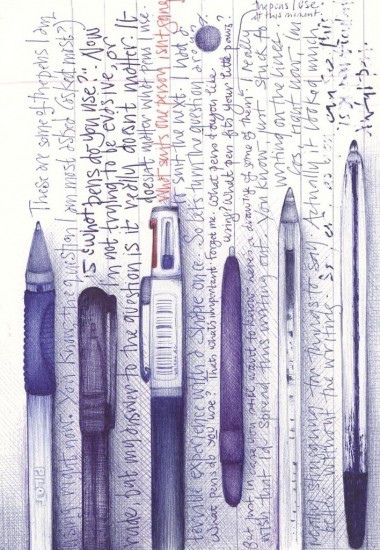 These are some of the pens I am
using right now. You know, the question I am most asked
is 'what pens do you use?'. Now
I'm not trying to be evasive, or
rude but my answer to the question is it really doesn't matter. It
doesn't matter what pens I use.
What suits one person isn't going
suit the next. I had a
terrible experience with a Sharpie once. So let's turn the question
What pens do you use? That's what's important. Forget me. What pens do you like
using? What pen fits your little paws?
But just in case you still want to know, here's a drawing of some of them. I really
the pens I use
at this moment.
wish that I'd spend this writing out. You know, just stuck to
writing on the lines.
as right now I'm
really struggling for things to say. Actually it looked much
better without the writing. So